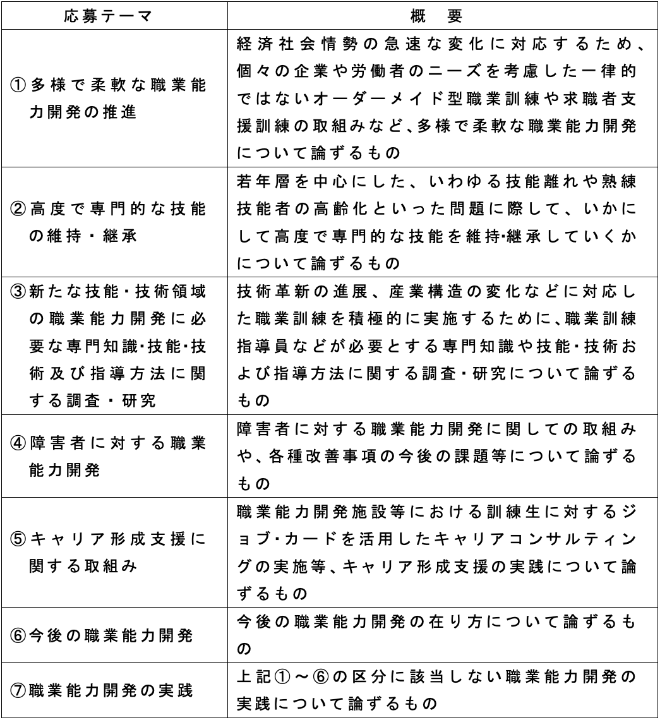 応募テーマ
概　要
①多様で柔軟な職業能
力開発の推進
経済社会情勢の急速な変化に対応するため、
個々の企業や労働者のニーズを考慮した一律的
ではないオーダーメイド型職業訓練や求職者支
援訓練の取組みなど、多様で柔軟な職業能力開発
について論ずるもの
②高度で専門的な技能
の維持・継承
若年層を中心にした、いわゆる技能離れや熟練
技能者の高齢化といった問題に際して、いかに
して高度で専門的な技能を維持・継承していくか
について論ずるもの
③新たな技能・技術領域
の職業能力開発に必
要な専門知識・技能・技
術及び指導方法に関
する調査・研究
技術革新の進展、産業構造の変化などに対応し
た職業訓練を積極的に実施するために、職業訓練
指導員などが必要とする専門知識や技能・技術お
よび指導方法に関する調査・研究について論ずる
もの
④障害者に対する職業
能力開発
障害者に対する職業能力開発に関しての取組み
や、各種改善事項の今後の課題等について論ずる
もの
⑤キャリア形成支援に
関する取組み
職業能力開発施設等における訓練生に対するジ
ョブ・カードを活用したキャリアコンサルティン
グの実施等、キャリア形成支援の実践について論
ずるもの
⑥今後の職業能力開発
今後の職業能力開発の在り方について論ずるも
の
⑦職業能力開発の実践
上記①～⑥の区分に該当しない職業能力開発の
実践について論ずるもの